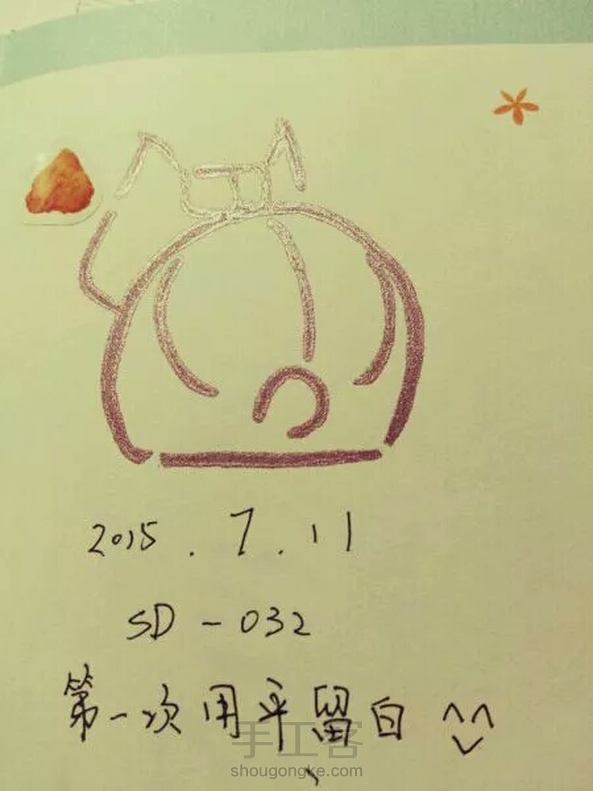 2015.7.11
SD-032
第一次用平留白 ^^
手工客
shougongke.com